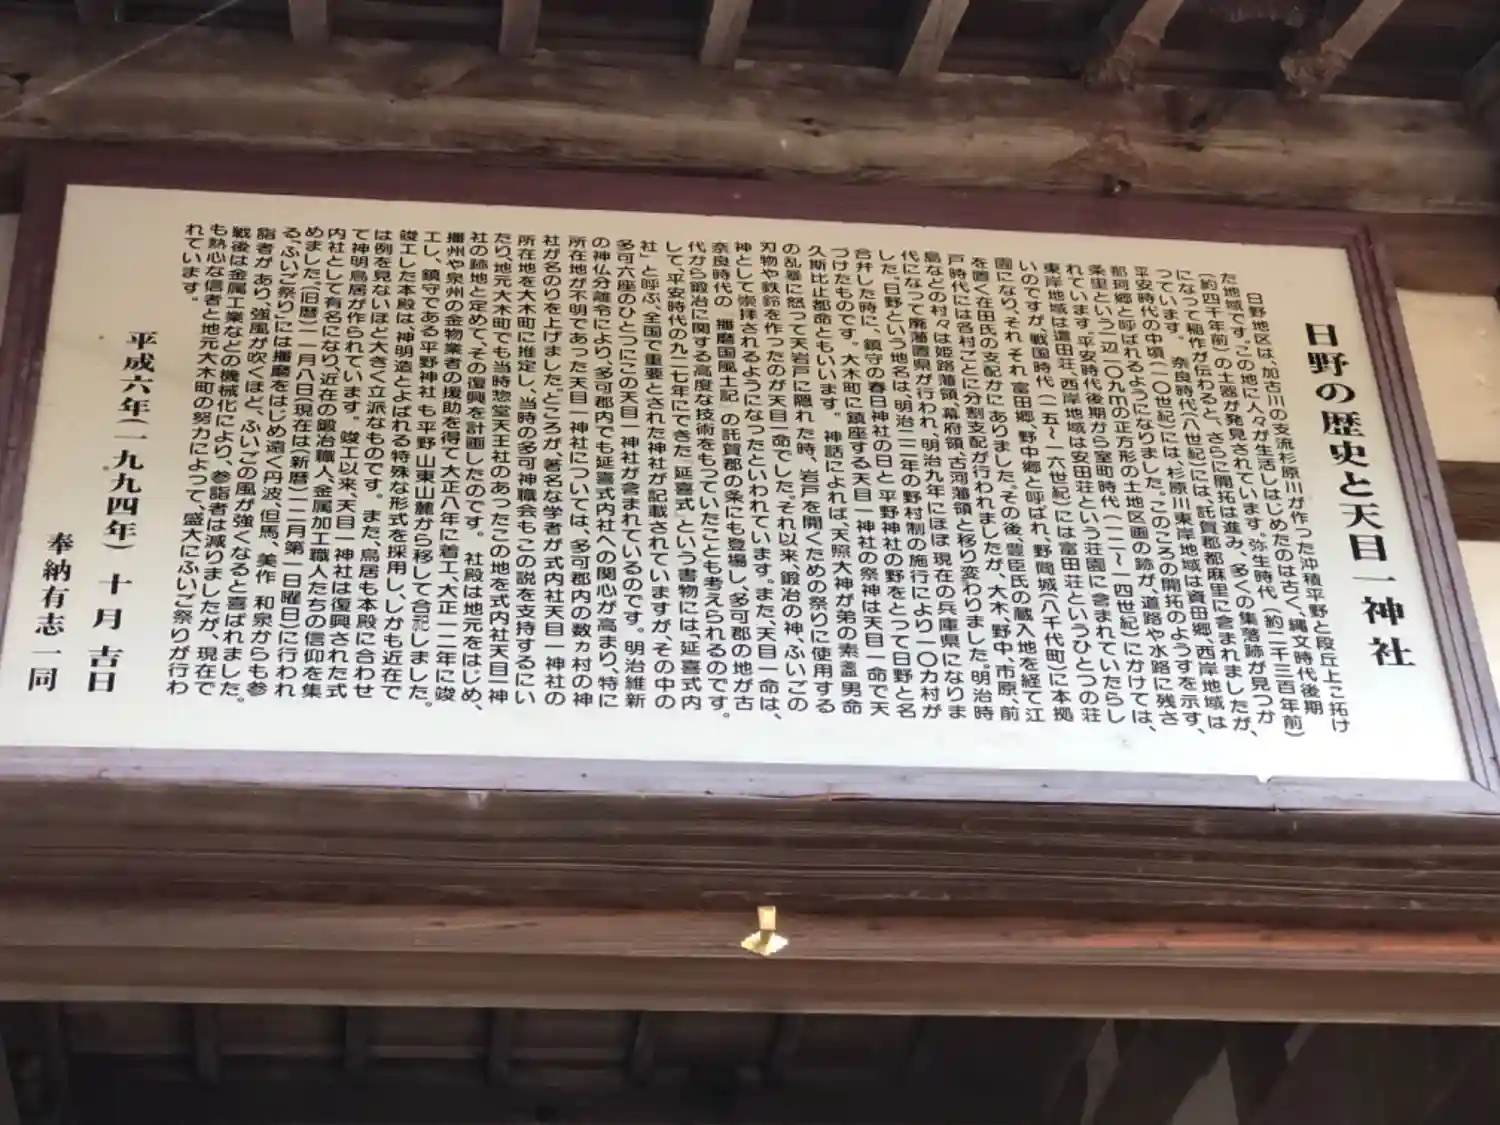 日野の歴史と天目一神社
日野地区は、加古川の支流杉原川が作った沖積平野と段丘上に拓け
た地域です。この地に人々が生活しはじめたのは古く、縄文時代後期
(約四千年前)の土器が発見されています。弥生時代(約二千三百年前)
になって稲作が伝わると、さらに開拓は進み、多くの集落跡が見つか
っています。 奈良時代(八世紀)には、託賀郡都麻里に含まれましたが、
平安時代の中頃(一〇世紀)には、杉原川東岸地域は資母郷、西岸地域は
那珂郷と呼ばれるようになりました。このころの開拓のようすを示す、
条里という一辺一〇九mの正方形の土地区画の跡が、道路や水路に残さ
れています。平安時代後期から室町時代(一二~一四世紀)にかけては、
東岸地域は這田荘、西岸地域は安田荘という荘園に含まれていたらし
いのですが、戦国時代(一五~一六世紀)には富田荘というひとつの荘
園になり、それぞれ富田郷、野中郷と呼ばれ、野間城(八千代町)に本拠
を置く在田氏の支配下にありました。その後、豊臣氏の蔵入地を経て江
戸時代には各村ごとに分割支配が行われましたが、大木、野中、市原、前
島などの村々は姫路藩領、幕府領、古河藩領と移り変わりました。明治時
代になって廃藩置県が行われ、明治九年にほぼ現在の兵庫県になりま
した。日野という地名は明治二二年の野村制の施行により一〇カ村が
合弁した時に、鎮守の春日神社の日と平野神社の野をとって日野と名
づけたものです。大木町に鎮座する天目一神社の祭神は天目一命で天
久斯比止都命ともいいます。 神話によれば、天照大神が弟の素盞男命
の乱暴に怒って天岩戸に隠れた時、岩戸を開くための祭りに使用する
刃物や鉄鈴を作ったのが天目一命でした。それ以来、鍛冶の神、ふいごの
神として崇拝されるようになったといわれています。また、天目一命は、
奈良時代の『播磨国風土記』の託賀郡の条にも登場し、多可郡の地が古
代から鍛冶に関する高度な技術をもっていたことも考えられるのです。
して、平安時代の九二七年にできた「延喜式」という書物には、「延喜式内
社」と呼ぶ、全国で重要とされた神社が記載されていますが、その中の
多可六座のひとつにこの天目一神社が含まれているのです。明治維新
の神仏分離令により、多可郡内でも延喜式内社への関心が高まり、特に
所在地が不明であった天目一神社については、多可郡内の数ヵ村の神
社が名のりを上げました。ところが、著名な学者が式内社天目一神社の
所在地を大木町に推定し、当時の多可神職会もこの説を支持するにい
たり、地元大木町でも当時惣堂天王社のあったこの地を式内社天目一神
社の跡地と定めて、その復興を計画したのです。 社殿は地元をはじめ、
播州や泉州の金物業者の援助を得て大正八年に着工、大正一二年に竣
工し、鎮守である平野神社も平野山東山麓から移して合祀しました。
竣工した本殿は、神明造とよばれる特殊な形式を採用し、しかも近在で
は例を見ないほど大きく立派なものです。 また、鳥居も本殿に合わせ
て神明鳥居が作られています。 竣工以来、天目一神社は復興された式
内社として有名になり、近在の鍛冶職人、金属加工職人たちの信仰を集
めました。(旧暦)一一月八日(現在は(新暦)一二月第一日曜日)に行われ
る、ふいご祭り)には播磨をはじめ遠く丹波、但馬、美作、和泉からも参
詣者があり、強風が吹くほど、ふいごの風が強くなると喜ばれました。
戦後は金属工業などの機械化により、参詣者は減りましたが、現在で
も熱心な信者と地元大木町の努力によって、盛大にふいご祭りが行わ
れています。
平成六年(一九九四年)十月吉日
奉納有志一同